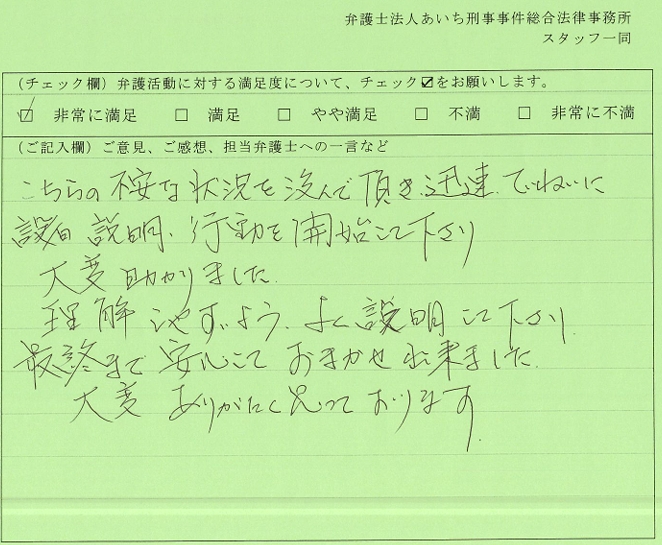 弁護士法人あいち刑事事件総合法律事務所
スタッフ一同
（チェック欄）弁護活動に対する満足度について、チェック☑をお願いします。
☑ 非常に満足 □ 満足 □ やや満足 □ 不満 □ 非常に不満
（ご記入欄）ご意見、ご感想、担当弁護士への一言など
こちらの不安な状況を汲んで頂き、迅速、ていねいに
説明、行動を開始して下さり
大変助かりました。
理解しやすいよう、よく説明して下さり、
最終まで安心しておまかせ出来ました。
大変ありがたく思っております。